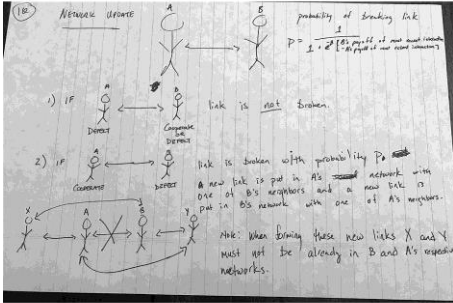 182
NETWORK UPDATE
A
B
probability of breaking link
P = 1
1 + e^β [B's payoff of most recent interaction
- A's payoff of most recent interaction]
1) IF
A
B
link is not broken.
DEFECT
Cooperate
or
DEFECT
2) IF
A
B
link is broken with probability P.
COOPERATE
DEFECT
A new link is put in A's network with
one of B's neighbors and a new link is
put in B's network with one of A's neighbors.
X
A
B
Y
Note: When forming these new links X and Y
must not be already in B and A's respective
networks.